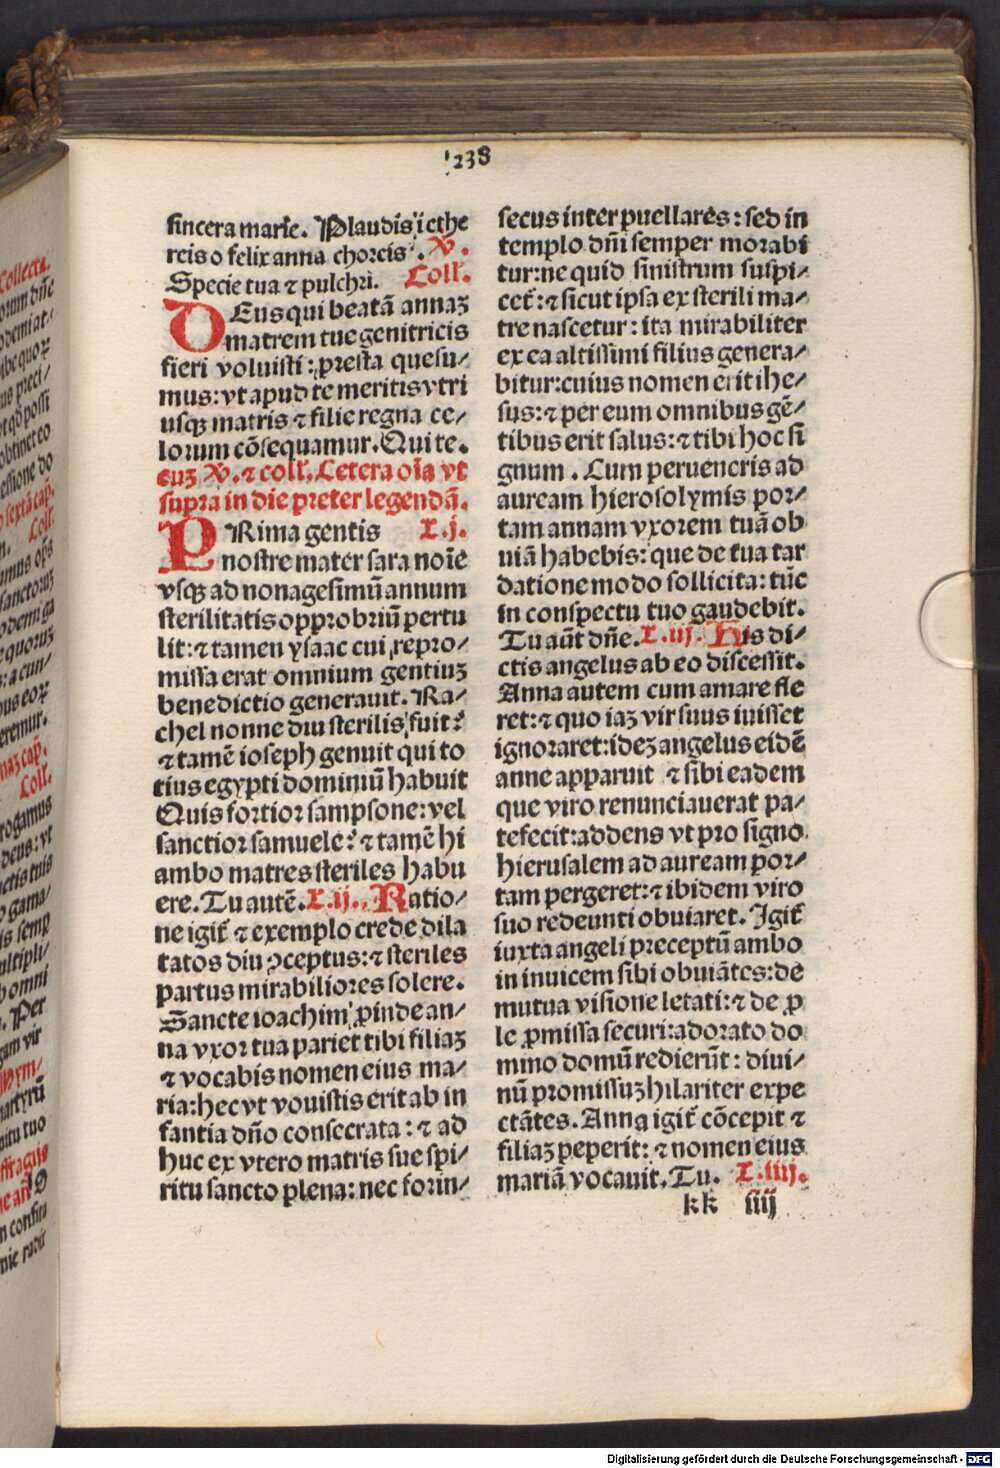 238
sincera marie. Plaudis i ethe
reis o felix anna choreis. V.
Specie tua ⁊ pulchri. Coll.
DEus qui beatā annaʒ
matrem tue genitricis
fieri voluisti: presta quesu/
mus: vt apud te meritis vtri
usqʒ matris ⁊ filie regna ce/
lorum cōsequamur. Qui te.
cuʒ V. ⁊ coll. Cetera oīa vt
supra in die preter legendā.
PRima gentis L.j.
nostre mater sara noīe
vsqʒ ad nonagesimū annum
sterilitatis opprobriū pertu
lit: ⁊ tamen ysaac cui repro/
missa erat omnium gentiuʒ
benedictio generauit. Ra/
chel nonne diu sterilis fuit?
⁊ tamē ioseph genuit qui to
tius egypti dominiū habuit
Quis fortior sampsone: vel
sanctior samuele? ⁊ tamē hi
ambo matres steriles habu
ere. Tu autē. L.ij. Ratio/
ne igit̄ ⁊ exemplo crede dila
tatos diu ꝯceptus: ⁊ steriles
partus mirabiliores solere.
Sancte ioachim ꝓinde an/
na vxor tua pariet tibi filiaʒ
⁊ vocabis nomen eius ma/
ria: hec vt vouistis erit ab in
fantia dño consecrata: ⁊ ad
huc ex vtero matris sue spi/
ritu sancto plena: nec forin/
secus inter puellares: sed in
templo dñi semper morabi
tur: ne quid sinistrum suspi/
cet̄: ⁊ sicut ipsa ex sterili ma/
tre nascetur: ita mirabiliter
ex ea altissimi filius genera/
bitur: cuius nomen erit ihe/
sus: ⁊ per eum omnibus gē/
tibus erit salus: ⁊ tibi hoc si
gnum. Cum perueneris ad
auream hierosolymis por/
tam annam vxorem tuā ob
uiā habebis: que de tua tar
datione modo sollicita: tūc
in conspectu tuo gaudebit.
Tu aūt dñe. L.iij. His di/
ctis angelus ab eo discessit.
Anna autem cum amare fle
ret: ⁊ quo iaʒ vir suus iuisset
ignoraret: ideʒ angelus eidē
anne apparuit ⁊ sibi eadem
que viro renunciauerat pa/
tefecit: addens vt pro signo
hierusalem ad auream por/
tam pergeret: ⁊ ibidem viro
suo redeunti obuiaret. Igit̄
iuxta angeli preceptū ambo
in inuicem sibi obuiātes: de
mutua visione letati: ⁊ de ꝓ
le ꝓmissa securi: adorato do
mino domū redierūt: diui/
nū promissuʒ hilariter expe
ctātes. Anna igit̄ cōcepit ⁊
filiaʒ peperit: ⁊ nomen eius
mariā vocauit. Tu. L.iiij.
kk iiij
Collecta.
Coll.
Coll.
Digitalisierung gefördert durch die Deutsche Forschungsgemeinschaft - DFG